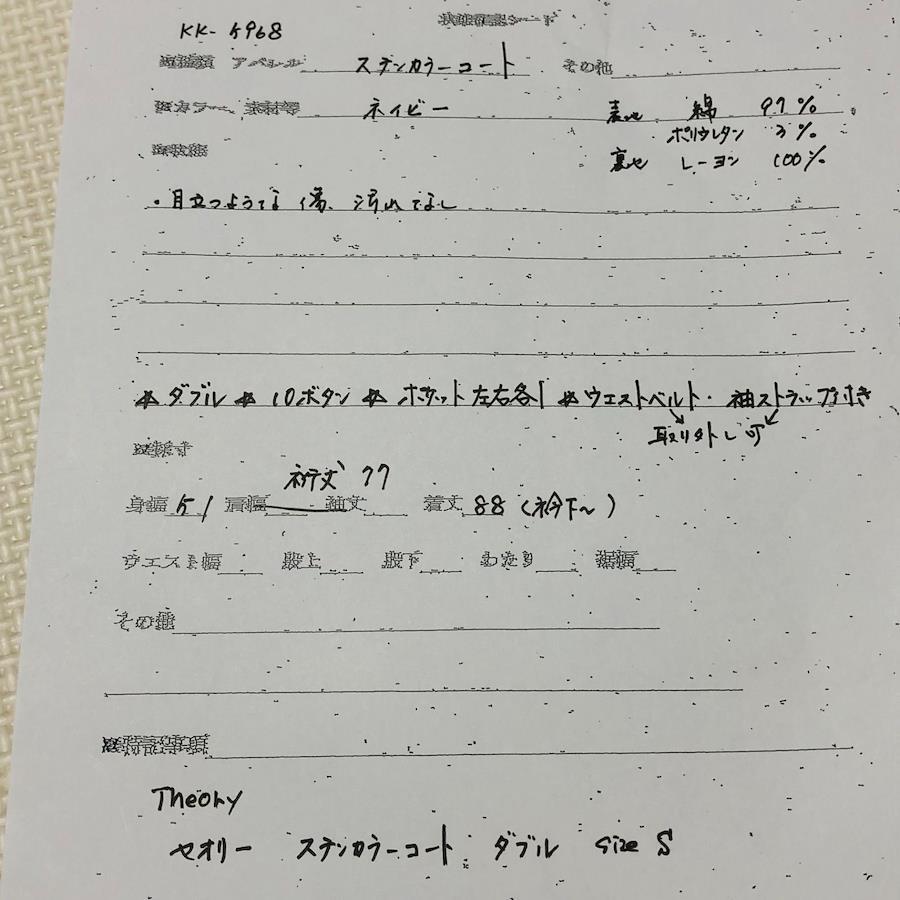 状態確認シート
KK-5968
種類 アパレル ステンカラーコート その他
カラー、素材等 ネイビー 表地 綿 97%
ポリウレタン 3%
状態 裏地 レーヨン 100%
・目立つような傷、汚れなし
☆ダブル ☆10ボタン ☆ポケット左右各1 ☆ウエストベルト・袖ストラップ付き
取り外し可
採寸
裄丈 77
身幅 51 肩幅 袖丈 着丈 88(衿下~)
ウエスト幅 股上 股下 わたり 裾幅
その他
特記事項
Theory
セオリー ステンカラーコート ダブル size S